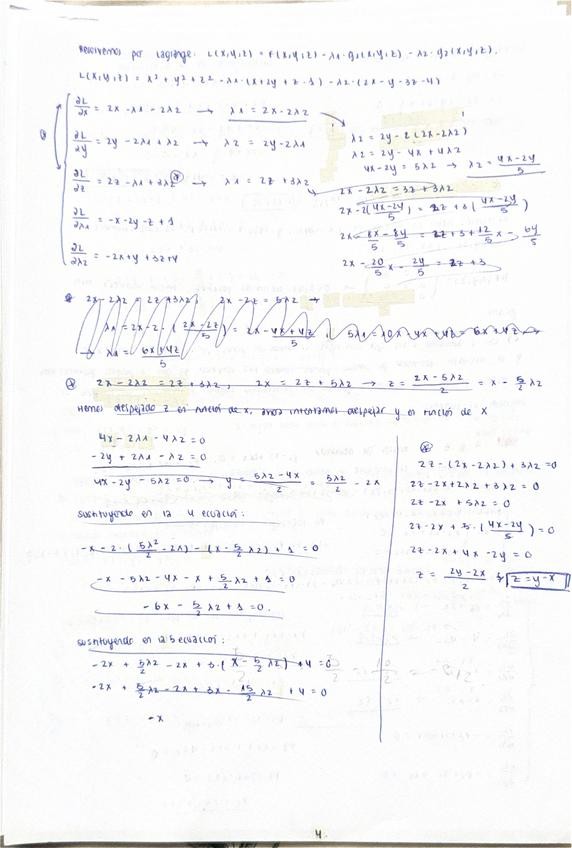 Resolvemos por Lagrange: L(x,y,z) = F(x,y,z) - λ1·g1(x,y,z) - λ2·g2(x,y,z).
L(x,y,z) = x² + y² + z² - λ1·(x+2y+z-1) - λ2·(2x-y-3z-4)
∂L/∂x = 2x - λ1 - 2λ2 → λ1 = 2x - 2λ2
∂L/∂y = 2y - 2λ1 + λ2 → λ2 = 2y - 2λ1
∂L/∂z = 2z - λ1 + 3λ2 → λ1 = 2z + 3λ2
∂L/∂λ1 = -x - 2y - z + 1
∂L/∂λ2 = -2x + y + 3z + 4
λ2 = 2y - 2(2x-2λ2)
λ2 = 2y - 4x + 4λ2
4x - 2y = 5λ2 → λ2 = (4x-2y)/5
2x - 2λ2 = 3z + 3λ2
2x - 2(4x-2y)/5 = 2z + 3(4x-2y)/5
2x - 8x-8y/5 = 2z + 3 + 12/5 x - 6y/5
2x - 20/5 x - 2y/5 = 2z + 3
2x - 2λ2 = 2z + 3λ2; 2x - 2z = 5λ2 →
λ1 = 2x - 2·(2x-2z)/5 = 2x - 4x+4z/5
→ λ1 = (6x+4z)/5
2x - 2λ2 = 2z + 3λ2, 2x = 2z + 5λ2 → z = (2x-5λ2)/2 = x - 5/2 λ2
Hemos despejado z en función de x, ahora intentamos despejar y en función de x
4x - 2λ1 - 4λ2 = 0
-2y + 2λ1 - λ2 = 0
4x - 2y - 5λ2 = 0 → y = (5λ2-4x)/2 = 5λ2/2 - 2x
sustituyendo en la 4 ecuación:
-x - 2·(5λ2/2 - 2x) - (x - 5/2 λ2) + 1 = 0
-x - 5λ2 - 4x - x + 5/2 λ2 + 1 = 0
-6x - 5/2 λ2 + 1 = 0.
sustituyendo en la 5 ecuación:
-2x + 5/2 λ2 - 2x + 3·(x - 5/2 λ2) + 4 = 0
-2x + 5/2 λ2 - 2x + 3x - 15/2 λ2 + 4 = 0
-x
2z - (2x-2λ2) + 3λ2 = 0
2z - 2x + 2λ2 + 3λ2 = 0
2z - 2x + 5λ2 = 0
2z - 2x + 5·(4x-2y)/5 = 0
2z - 2x + 4x - 2y = 0
z = (2y-2x)/2 z = y - x
4